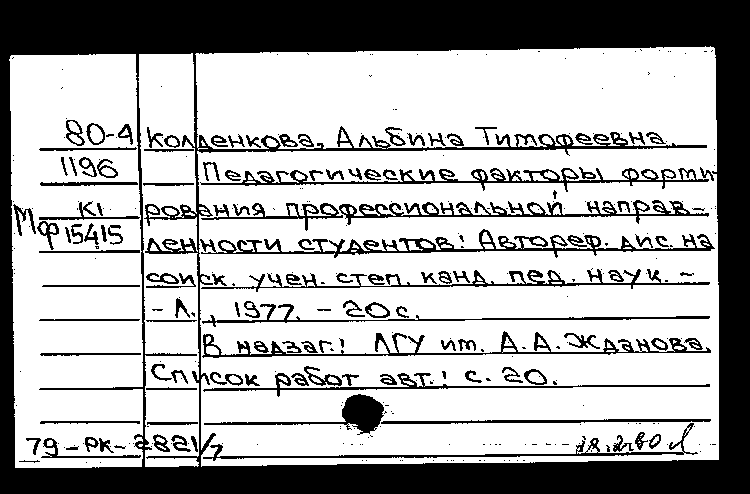 80-4 Колденкова, Альбина Тимофеевна.
1196 Педагогические факторы форми-
К1 рования профессиональной направ-
Мф 15415 ленности студентов: Автореф. дис. на
соиск. учен. степ. канд. пед. наук. -
- Л., 1977. - 20 с.
В надзаг.: ЛГУ им. А. А. Жданова.
Список работ авт.: с. 20.
79-РК-2821/7